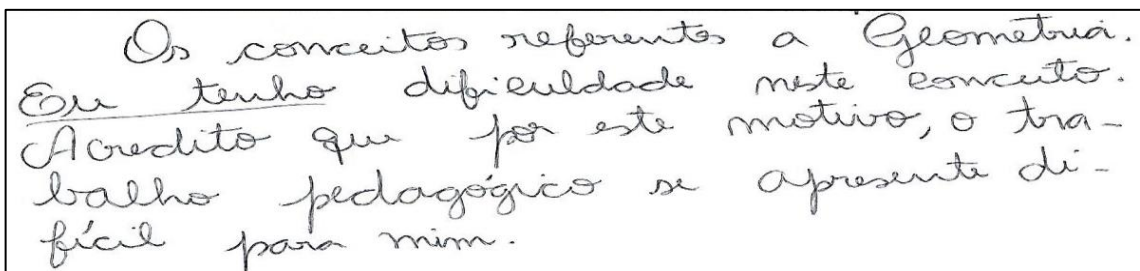 Os conceitos referentes a Geometria.
Eu tenho dificuldade neste conceito.
Acredito que por este motivo, o tra-
balho pedagógico se apresente di-
fícil para mim.